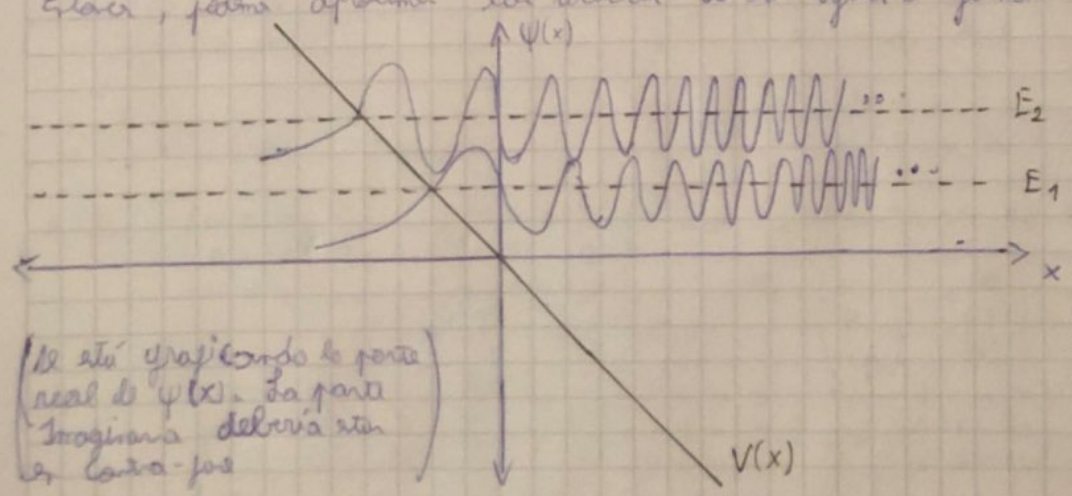 ψ(x)
E₂
E₁
x
Se está graficando la parte
real de ψ(x). La parte
Imaginaria debería estar
en contra-fase
V(x)